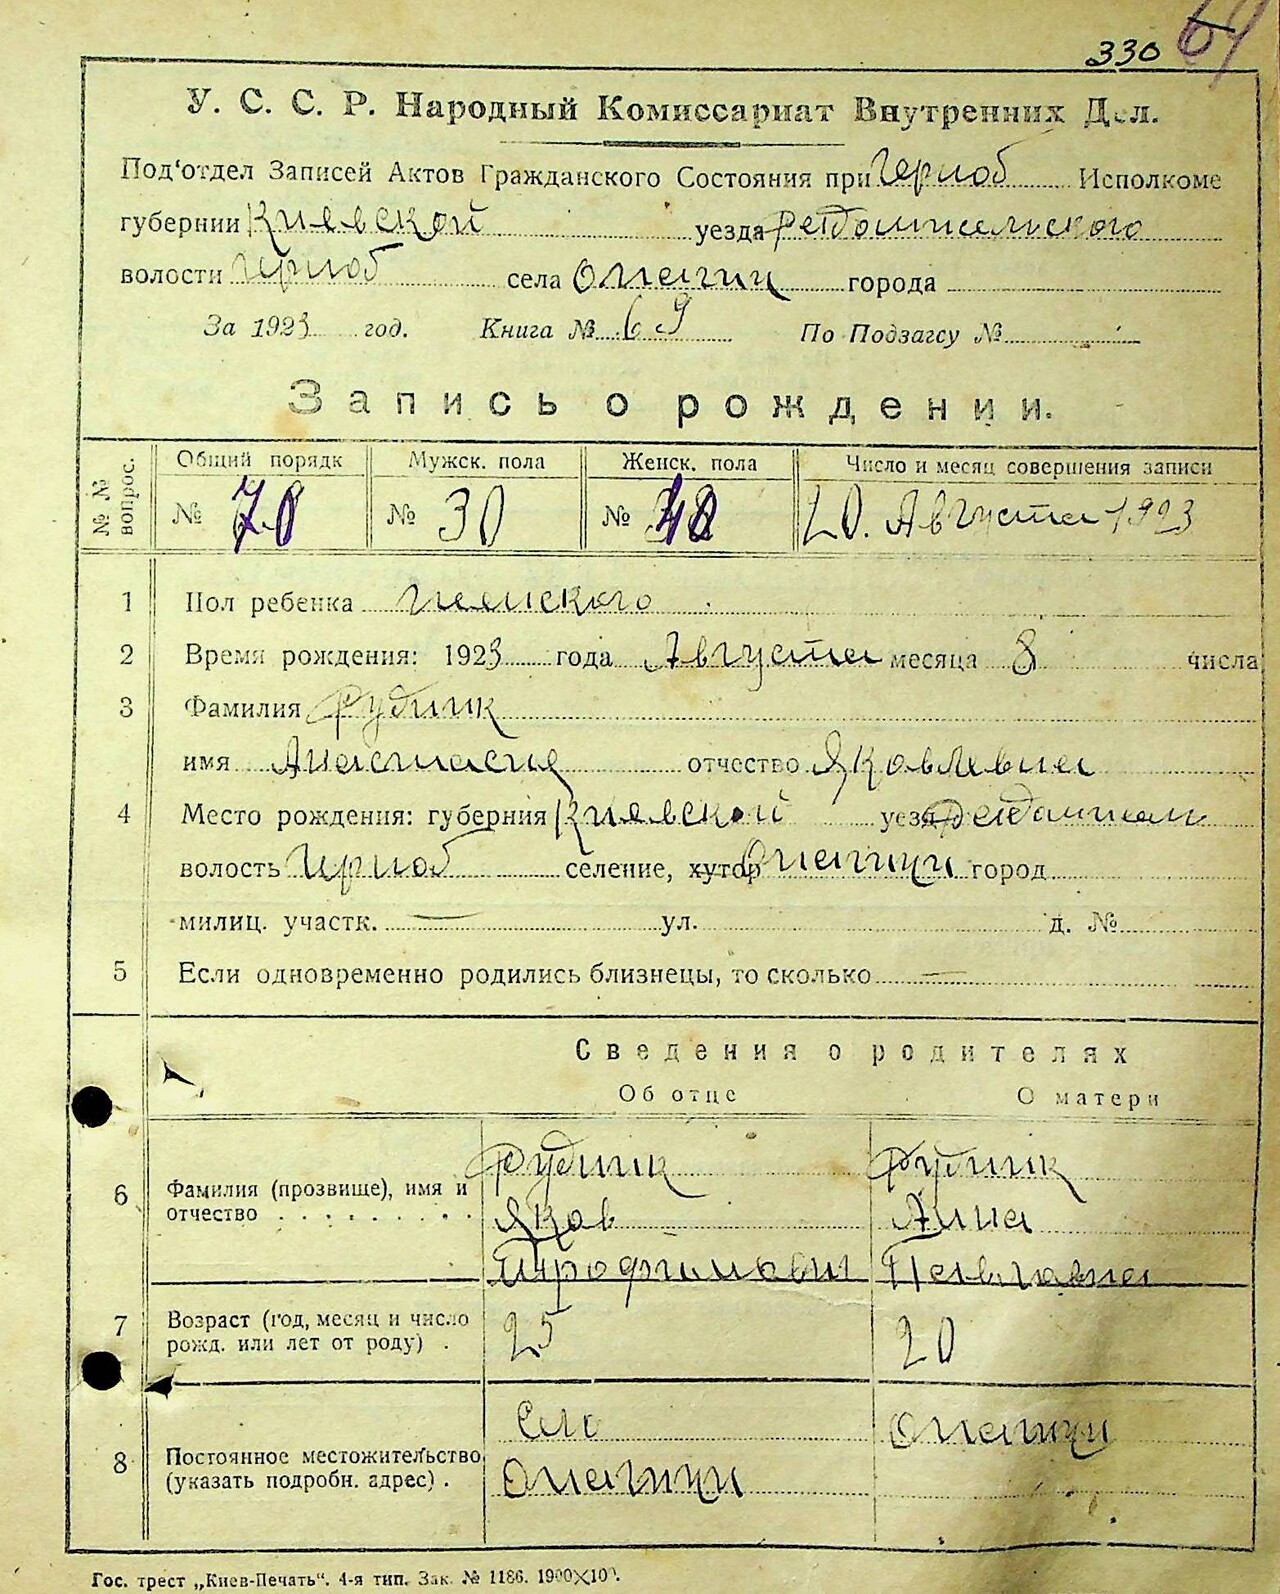 330 69
У. С. С. Р. Народный Комиссариат Внутренних Дел.
Под'отдел Записей Актов Гражданского Состояния при Черноб Исполкоме
губернии Киевской уезда
волости Черноб села Опачичи города
За 1923 год. Книга № 69 По Подзагсу №
Запись о рождении.
№ № вопрос. Общий порядк Мужск. пола Женск. пола Число и месяц совершения записи
№ 70 № 30 № 40 20. Августа 1923
1 Пол ребенка женского
2 Время рождения: 1923 года Августа месяца 8 числа
3 Фамилия Рудник
имя Анастасия отчество Яковлевна
4 Место рождения: губерния Киевской уезд
волость Черноб селение, хутор Опачичи город
милиц. участк. — ул. д. №
5 Если одновременно родились близнецы, то сколько —
Сведения о родителях
Об отце О матери
Рудник Рудник
6 Фамилия (прозвище), имя и отчество Яков Анна
Трофимович Павловна
7 Возраст (год, месяц и число рожд. или лет от роду) . 25 20
Село Опачичи
8 Постоянное местожительство (указать подробн. адрес) . Опачичи
Гос. трест „Киев-Печать“. 4-я тип. Зак. № 1186. 1900×100.